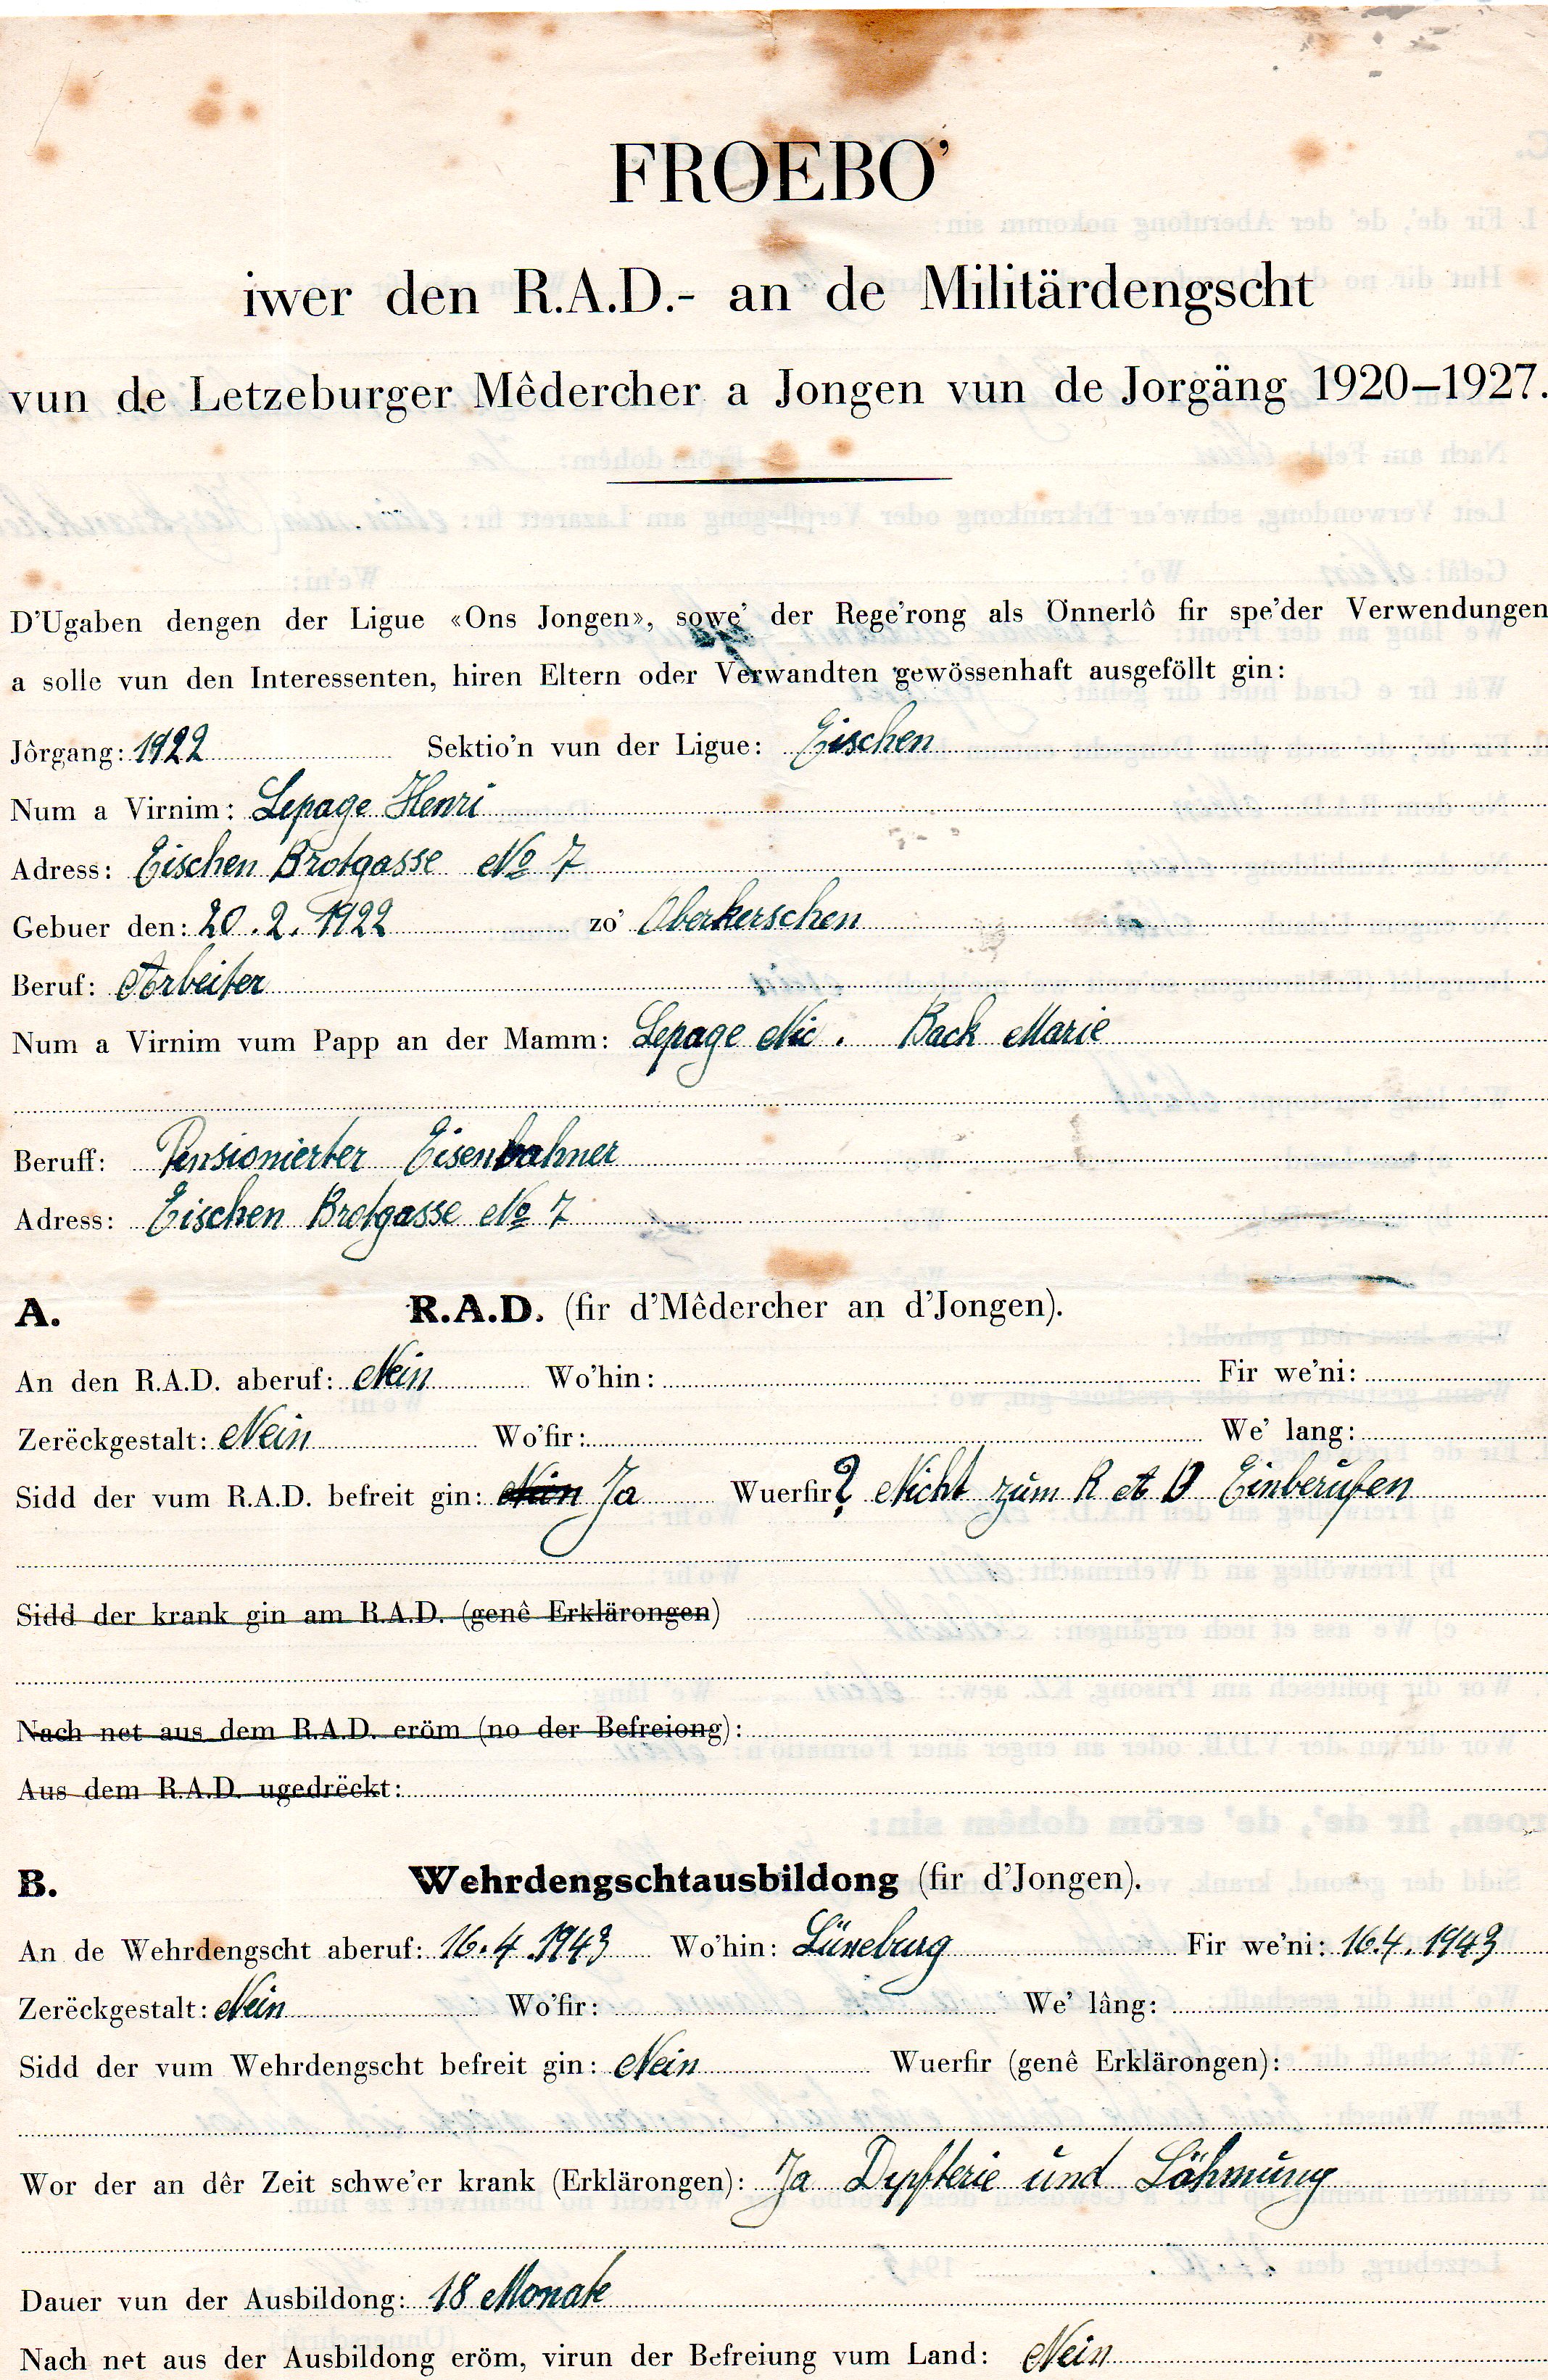 FROEBO’
iwer den R.A.D.- an de Militärdengscht
vun de Letzeburger Mêdercher a Jongen vun de Jorgäng 1920–1927.
D’Ugaben dengen der Ligue «Ons Jongen», sowe’ der Rege’rong als Önnerlô fir spe’der Verwendungen
a solle vun den Interessenten, hiren Eltern oder Verwandten gewössenhaft ausgeföllt gin:
Jôrgang: 1922 Sektio’n vun der Ligue: Eischen
Num a Virnim: Lepage Henri
Adress: Eischen Brotgasse No 7
Gebuer den: 20.2.1922 zo’ Oberkerschen
Beruf: Arbeiter
Num a Virnim vum Papp an der Mamm: Lepage Nic. Back Marie
Beruff: Pensionierter Eisenbahner
Adress: Eischen Brotgasse No 7
A. R.A.D. (fir d’Mêdercher an d’Jongen).
An den R.A.D. aberuf: Nein Wo’hin: Fir we’ni:
Zerëckgestalt: Nein Wo’fir: We’ lang:
Sidd der vum R.A.D. befreit gin: Nein Ja Wuerfir? Nicht zum R A D Einberufen
Sidd der krank gin am R.A.D. (genê Erklärongen)
Nach net aus dem R.A.D. eröm (no der Befreiong):
Aus dem R.A.D. ugedrëckt:
B. Wehrdengschtausbildong (fir d’Jongen).
An de Wehrdengscht aberuf: 16.4.1943 Wo’hin: Lüneburg Fir we’ni: 16.4.1943
Zerëckgestalt: Nein Wo’fir: We’ lâng:
Sidd der vum Wehrdengscht befreit gin: Nein Wuerfir (genê Erklärongen):
Wor der an dêr Zeit schwe’er krank (Erklärongen): Ja Dypfterie und Lähmung
Dauer vun der Ausbildong: 18 Monate
Nach net aus der Ausbildong eröm, virun der Befreiung vum Land: Nein